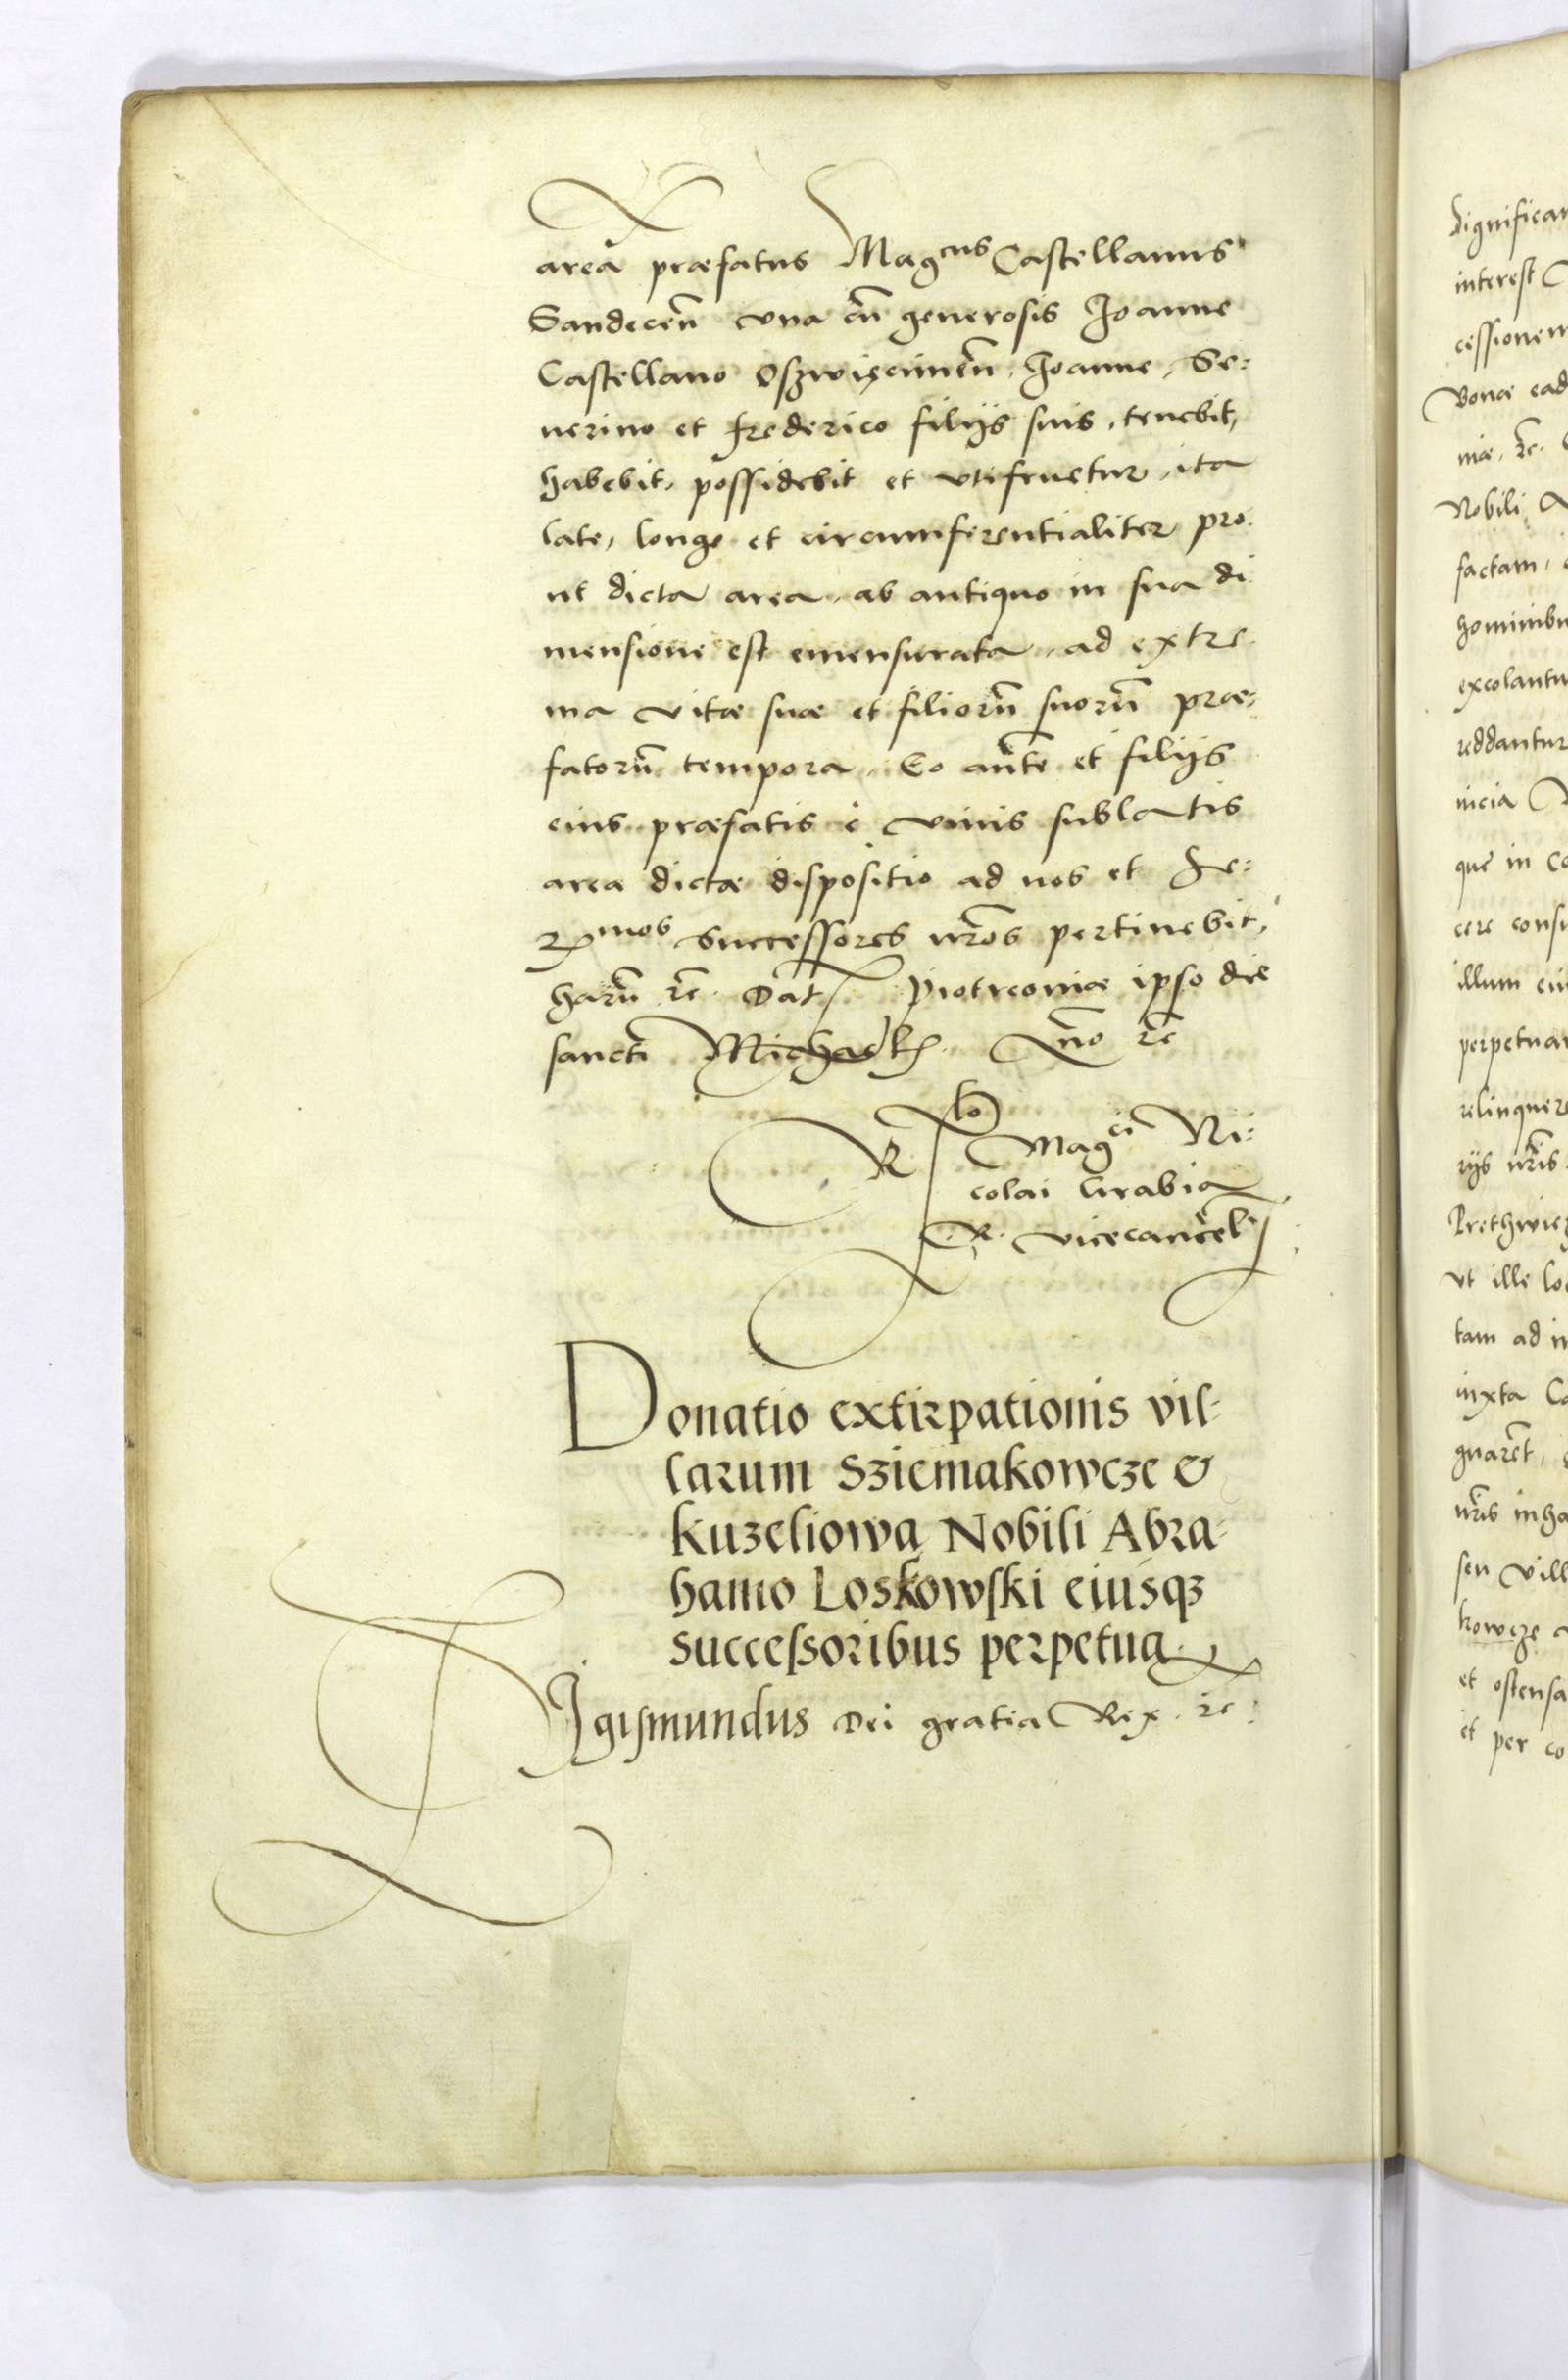 area præfatus Mag^cus Castellanus
Sandeceñ vna cũ generosis Joanne
Castellano Oszwięcimeñ, Joanne, Se:
uerino et Frederico filijs suis, tenebit,
habebit, possidebit et vtifruetur, ita
late, longe et circumferentialiter pro
ut dicta area, ab antiquo in sua di
mensione est emensurata, ad extre
ma vitæ suæ et filiorũ suorũ præ,
fatorũ tempora, Eo aũte et filijs
eius præfatis è viuis sublatis
area dictæ dispositio ad nos et Se:
r^mos successores nr̃os pertinebit,
harũ rc̃. Dat Piotrcouiæ ipso die
sancti Michaelis. Año rc̃
R^lo Mag^ci Ni:
colai Grabia
R. vicecancel
Donatio extirpationis vil-
larum Sziemakowcze &
Kuzeliowa Nobili Abra-
hamo Loskowski eiusqz
successoribus perpetua
Sigismundus Dei gratia Rex. rc:
dignifica
interest
cessionem
Bonæ ead
niæ, rc̃.
Nobili
factam,
hominibu
excolantu
reddantur
nicia
que in Ca
cere consu
illum
perpetua
relinquere
rijs nr̃is
Prethwic
vt ille lo
tam ad in
iuxta Ca
gnarẽt,
nr̃is inha
seu vill
kowcze
et ostensa
et per co